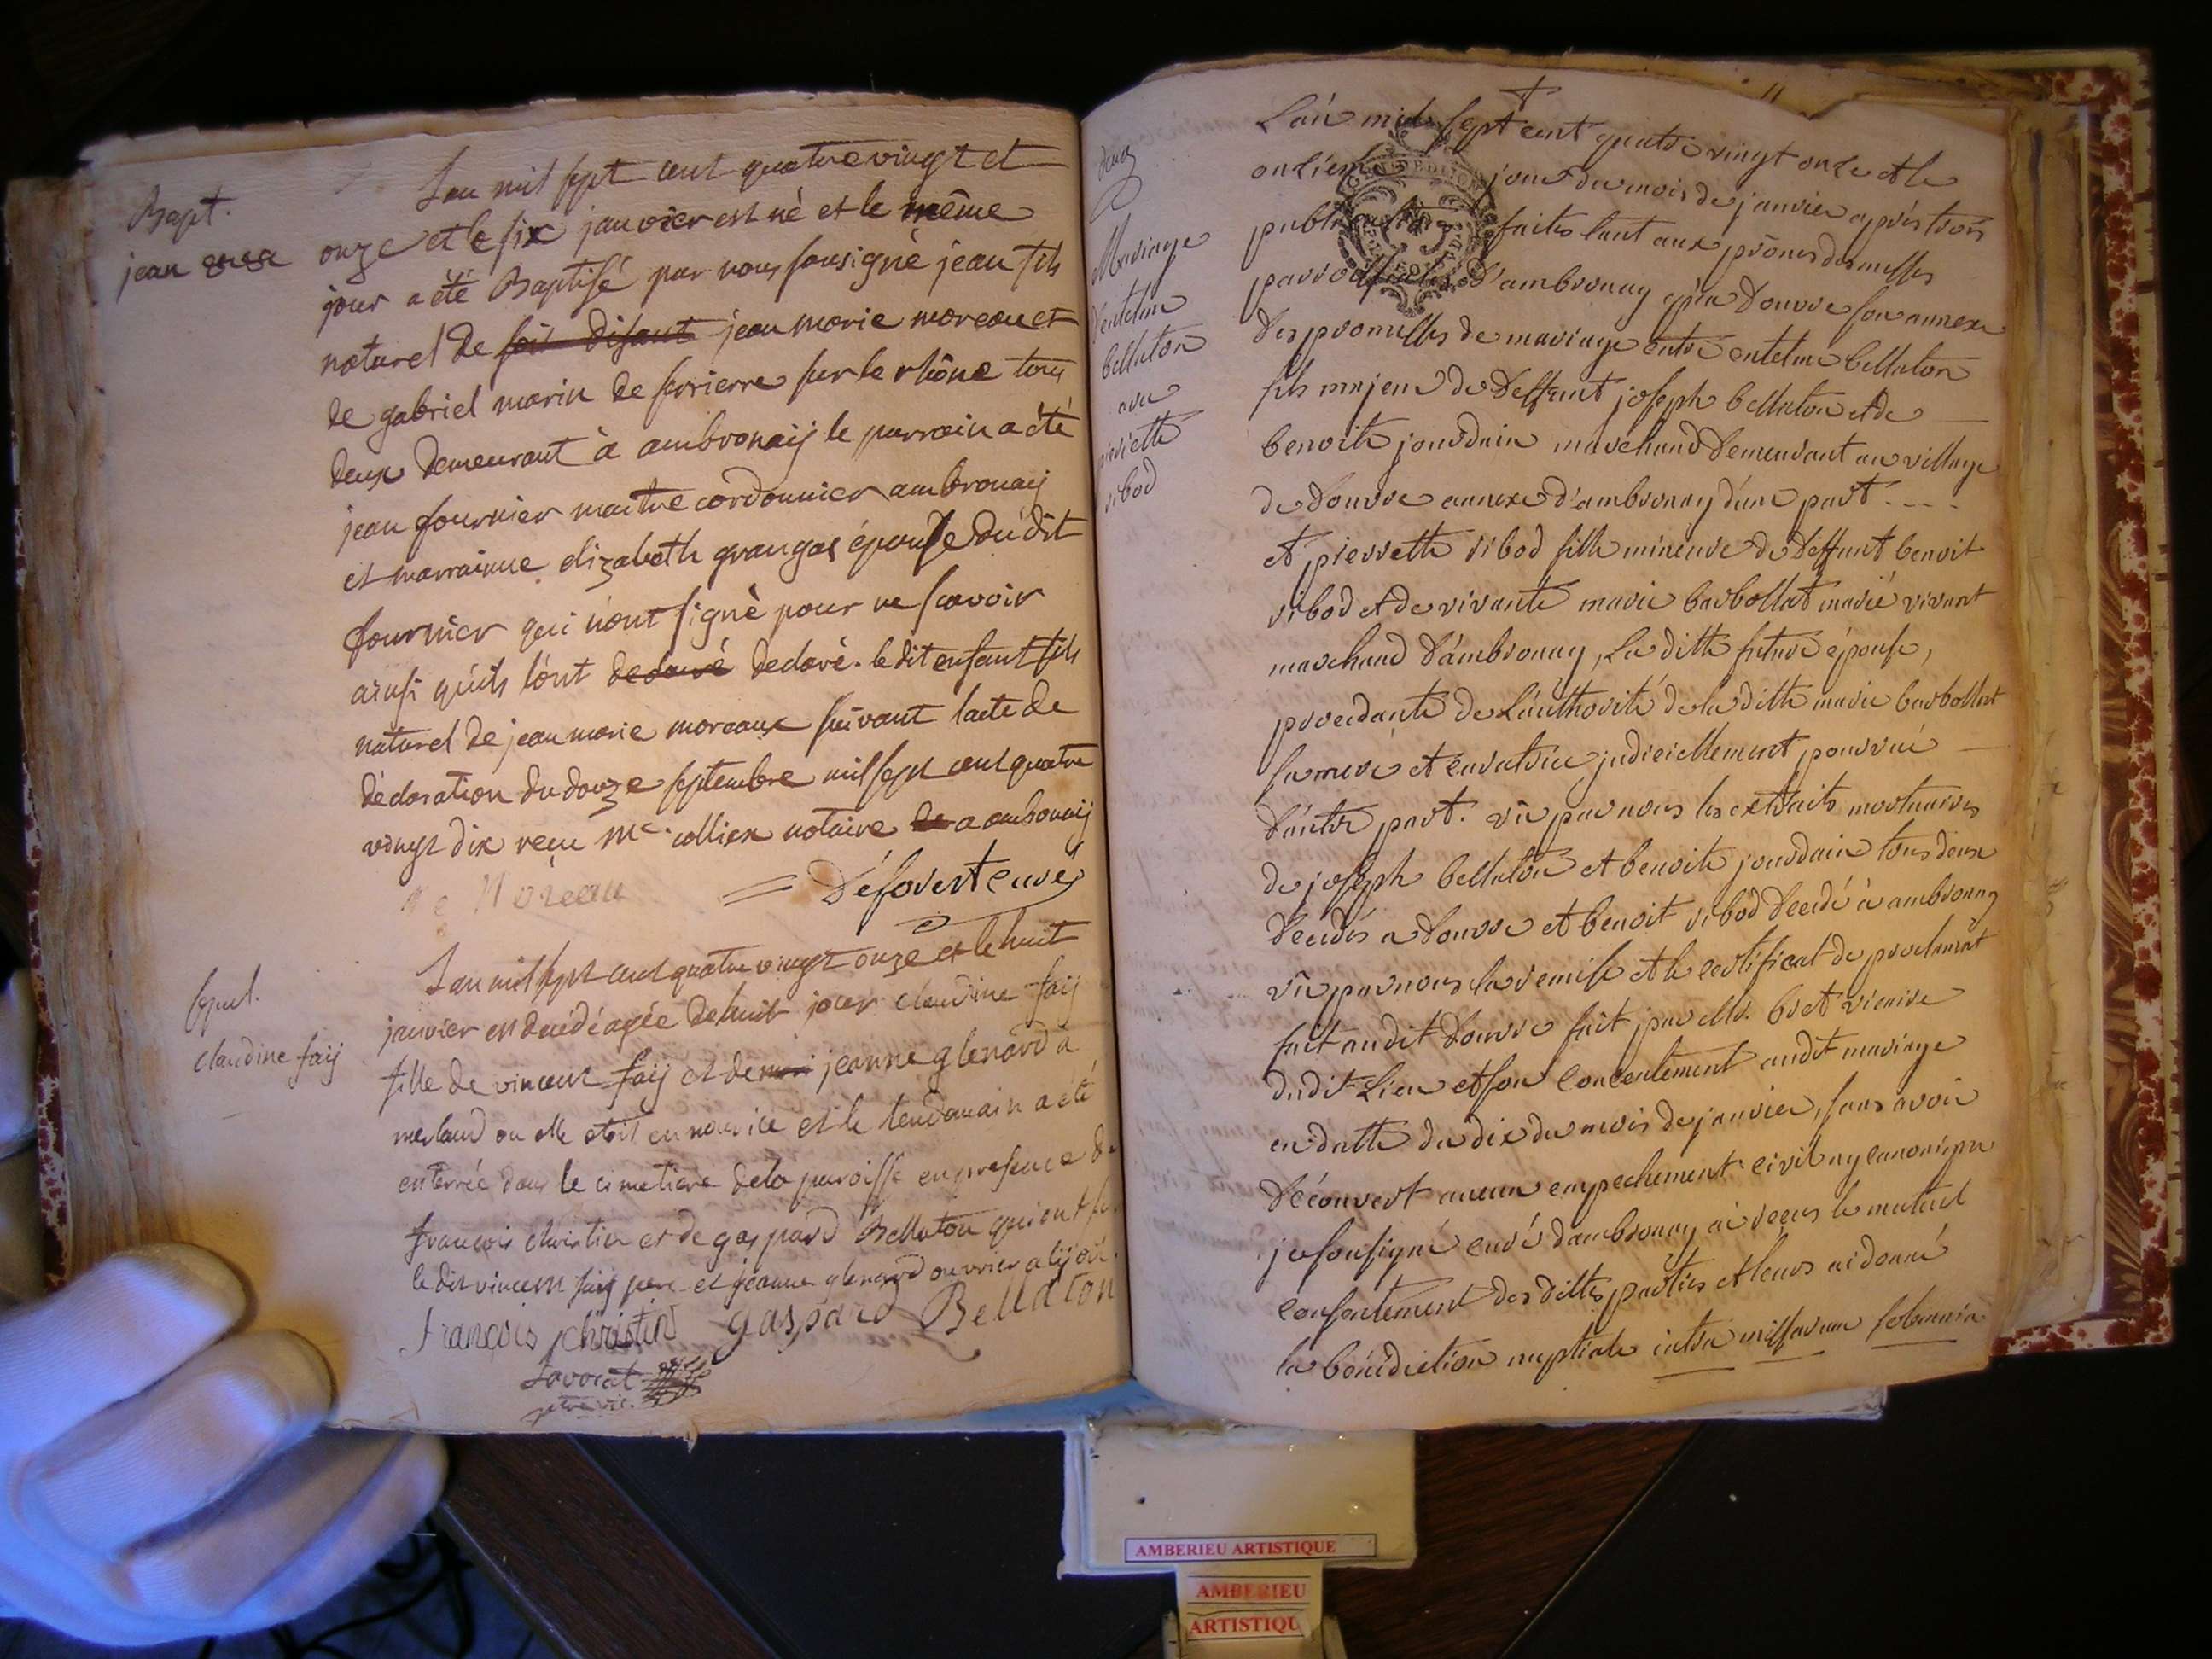 Bapt.
jean
Lan mil sept cent quatre vingt et
onze et le six janvier est né et le même
jour a été Baptisé par nous sousigné jean fils
naturel de soit disant jean marie moreau et
de gabriel marin de serrierre sur le rhône tous
deux demeurant à ambronaij le parrain a été
jean fournier maitre cordonnier ambronaij
et marrainne elizabeth grangas épouse du dit
fournier qui n'ont signé pour ne scavoir
ainsi qu'ils l'ont declaré declaré. le dit enfant fils
naturel de jean marie moreaux suivant lacte de
déclaration du douze septembre mil sept cent quatre
vingt dix reçu Me collier notaire de a ambonaij
Moreau
= Déforest curé
sepul.
claudine faij
Lan mil sept cent quatre vingt onze et le huit
janvier est decédé agée de huit jour claudine faij
fille de vincent faij et de jeanne glenard a
merland ou elle etoit en nourice et le lendemain a été
enterrée dans le cimetiere de la paroisse en presence de
françois christin et de gaspard Bellaton qui ont
le dit vincent faij pere et jeanne glenard ouvrier a
françois christin gaspard Bellaton
Savorat
Mariage
dentelme
bellaton
avec
pierrette
ribod
L'an mil sept cent quatre vingt onze et le
onzieme jour du mois de janvier après trois
publications faites tant aux prônes des messes
parroissiales d'ambronay qu'a Douvre son annexe
des promesses de mariage entre entelme bellaton
fils majeur de deffunt joseph bellaton et de
benoite jourdain marchand demeurant au village
de douvre annexe d'ambronay d'une part ----
et pierrette ribod fille mineure de deffunt benoit
ribod et de vivante marie barbollat marié vivant
marchand d'ambronay, La ditte future épouse,
procedante de L'authorité de la ditte marie barbollat
sa mere et curatrice judiciellement pourvue
d'autre part. vû par nous les extraits mortuaires
de joseph bellaton et benoite jourdain tous deux
decedés a douvre et benoit ribod decedé à ambronay
vû par nous la remise et le certificat de proclamat
fait audit douvre fait par Mr. bret vicaire
dudit Lieu et son consentement audit mariage
en datte du dix du mois de janvier, sans avoir
découvert aucun empechement civil ny canonique
je sousigné curé d'ambronay ai reçus le mutuel
consentement des dittes parties et leurs ai donné
la bénédiction nuptiale intra missarum solemnia
AMBERIEU ARTISTIQUE
AMBERIEU
ARTISTIQU